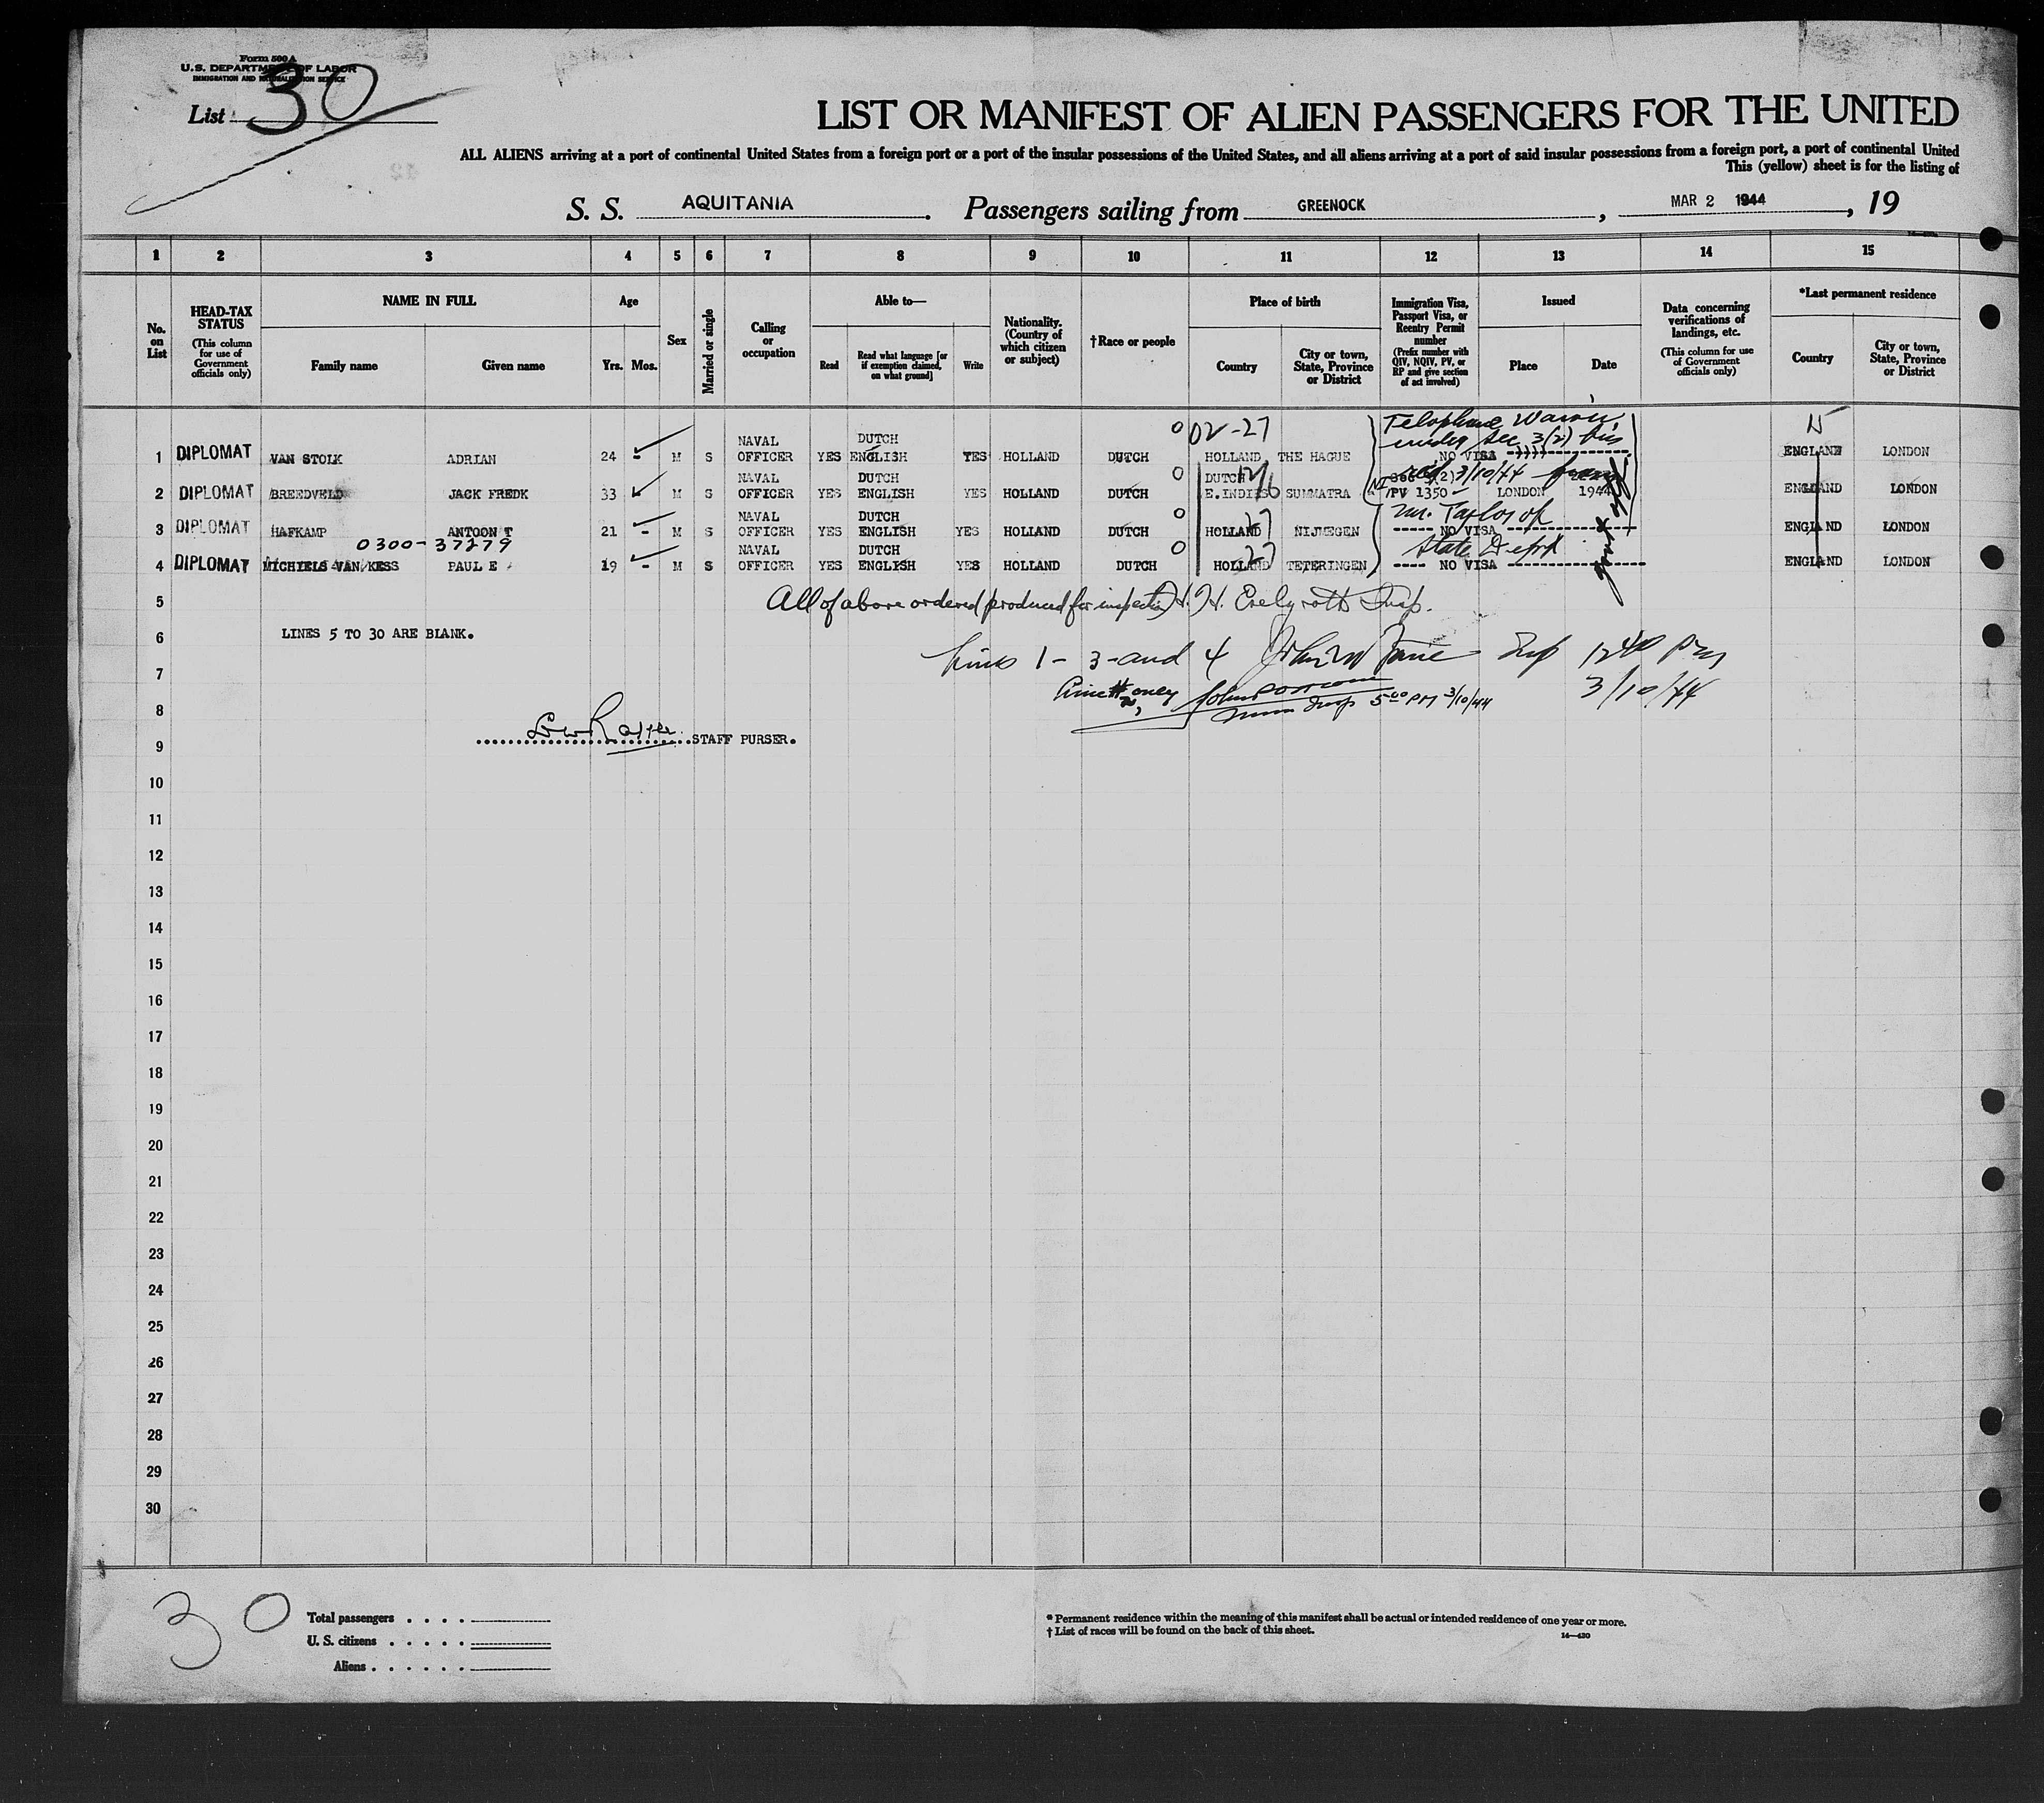 Form 500 A
U.S. DEPARTMENT OF LABOR
IMMIGRATION AND NATURALIZATION SERVICE
List 30
LIST OR MANIFEST OF ALIEN PASSENGERS FOR THE UNITED
ALL ALIENS arriving at a port of continental United States from a foreign port or a port of the insular possessions of the United States, and all aliens arriving at a port of said insular possessions from a foreign port, a port of continental United
This (yellow) sheet is for the listing of
S. S. AQUITANIA. Passengers sailing from GREENOCK, MAR 2 1944, 19
1 2 3 4 5 6 7 8 9 10 11 12 13 14 15
No. on List
HEAD-TAX STATUS (This column for use of Government officials only)
NAME IN FULL
Family name Given name
Age
Yrs. Mos.
Sex
Married or single
Calling or occupation
Able to—
Read Read what language [or if exemption claimed, on what ground] Write
Nationality. (Country of which citizen or subject)
†Race or people
Place of birth
Country City or town, State, Province or District
Immigration Visa, Passport Visa, or Reentry Permit number (Prefix number with QIV, NQIV, PV, or RP and give section of act involved)
Issued
Place Date
Data concerning verifications of landings, etc. (This column for use of Government officials only)
*Last permanent residence
Country City or town, State, Province or District
Telephone Waiver
under Sec. 3(2)
1 DIPLOMAT VAN STOLK ADRIAN 24 - M S NAVAL OFFICER YES DUTCH ENGLISH YES HOLLAND DUTCH HOLLAND THE HAGUE NO VISA ENGLAND LONDON
3/10/44 from
2 DIPLOMAT BREEDVELD JACK FREDK 33 M S NAVAL OFFICER YES DUTCH ENGLISH YES HOLLAND DUTCH DUTCH E.INDIES SUMMATRA PV 1350 LONDON 1944 ENGLAND LONDON
Mr. Taylor of
3 DIPLOMAT HAFKAMP ANTOON T 21 - M S NAVAL OFFICER YES DUTCH ENGLISH YES HOLLAND DUTCH HOLLAND NIJMEGEN NO VISA ENGLAND LONDON
0300-37279
State Dept
4 DIPLOMAT MICHIELS VAN KESS PAUL E 19 - M S NAVAL OFFICER YES DUTCH ENGLISH YES HOLLAND DUTCH HOLLAND TETERINGEN NO VISA ENGLAND LONDON
5 All of above ordered produced for inspection
6 LINES 5 TO 30 ARE BLANK.
Lines 1 - 3 - and 4 Insp 12 40 PM
7 3/10/44
Line # 2 only Insp 5 00 PM 3/10/44
8
9 STAFF PURSER.
10
11
12
13
14
15
16
17
18
19
20
21
22
23
24
25
26
27
28
29
30
30
Total passengers
U. S. citizens
Aliens
* Permanent residence within the meaning of this manifest shall be actual or intended residence of one year or more.
† List of races will be found on the back of this sheet.
14—430